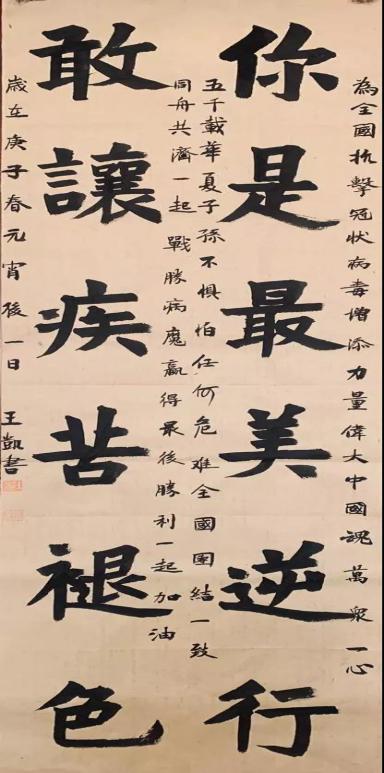 為全國抗擊冠狀病毒增添力量偉大中國魂萬衆一心
你是最美逆行
五千載華夏子孫不懼怕任何危難全國團結一致
同舟共濟一起戰勝病魔贏得最後勝利一起加油
敢讓疾苦褪色
歲在庚子春元宵後一日王凱書